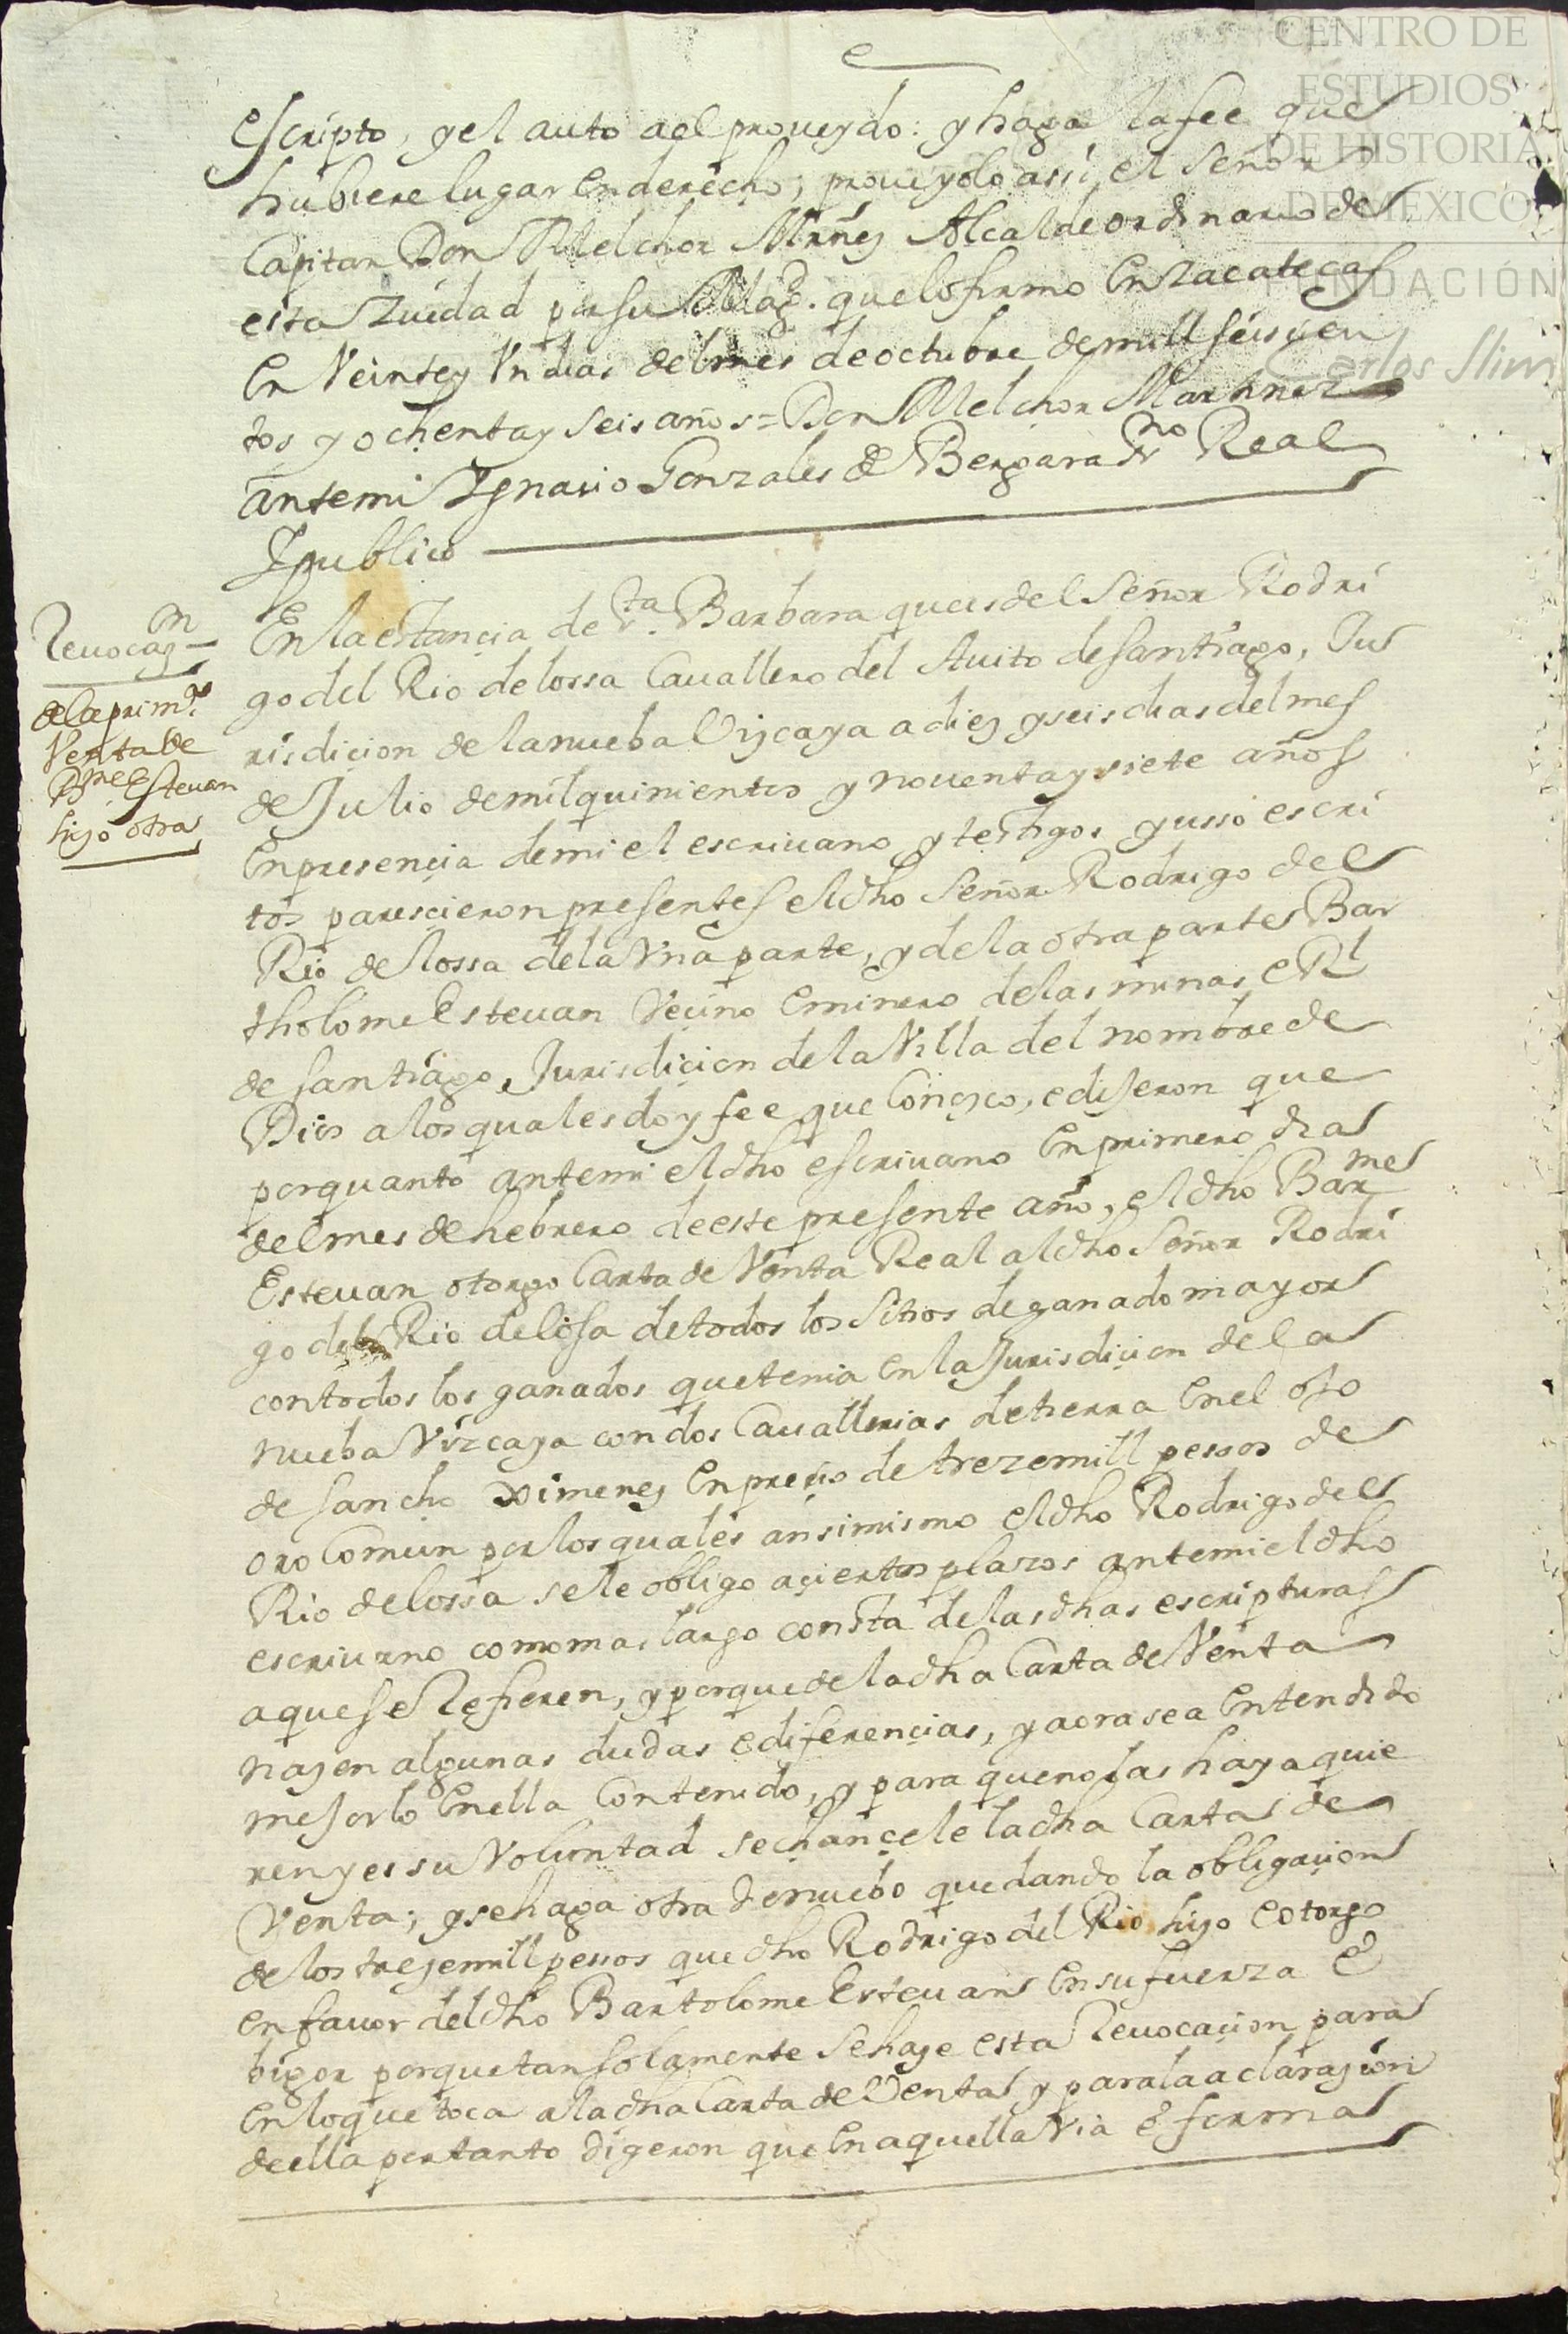 CENTRO DE
ESTUDIOS
DE HISTORIA
DE MEXICO
FUNDACIÓN
Carlos Slim
escripto, y el auto a el proueydo: y haga la fee que
hubiere lugar en derecho; proueyolo assi el Señor
Capitan Don Melchor Mrñez Alcalde ordinario de
esta Ziudad por su Magd. que lo firmo en Zacatecas
en Veinte y Un dias del mes de octubre de mill seiscien
tos y ochenta y seis años = Don Melchor Martinez
ante mi Ygnacio Gonzales de Bergara Real
Y publico
Reuocazon
de la prim.ra
Venta de
Bme Esteuan
hizo otra
En la estancia de Sta. Barbara que es del Señor Rodri
go del Rio de lossa Cauallero del Auito de santiago, Ju
risdicion de la nueba Vizcaya a diez y seis dias del mes
de Julio de mil quinientos y nouenta y siete años
En presençia de mi el escriuano y testigos yusso escri
tos paresçieron presentes el dho Señor Rodrigo del
Rio de lossa de la Vna parte, y de la otra parte Bar
tholome Esteuan Vecino e minero de las minas e Rl
de santiago, Jurisdiçion de la Villa del nombre de
Dios a los quales doy fee que Conosco, e dijeron que
por quanto ante mi el dho escriuano en primero dia
del mes de hebrero de este presente año, el dho Barme
Esteuan otorgo Carta de Venta Real al dho Señor Rodri
go del Rio de losa de todos los sitios de ganado mayor
con todos los ganados que tenia en la Jurisdiçion de la
nueba Vizcaya con dos Cauallerias de tierra en el ojo
de sancho ximenez en preçio de treze mill pessos de
oro Comun por los quales ansimismo el dho Rodrigo del
Rio de lossa se le obligo a çiertos plazos ante mi el dho
escriuano como mas largo consta de las dhas escripturas
a que se Refieren, y porque de la dha Carta de Venta
nazen algunas dudas e diferençias, y aora se a entendido
mejor lo en ella Contenido, y para que no las haya quie
ren y es su Voluntad se chançele la dha Carta de
Venta; y se haga otra de nuebo quedando la obligaçion
de los treze mill pessos que dho Rodrigo del Rio hizo e otorgo
en fauor del dho Bartolome Esteuan en su fuerza e
bigor porque tan solamente se haze esta Reuocaçion para
en lo que toca a la dha Carta de Venta y para la aclarazion
de ella por tanto digeron que en aquella Via e forma